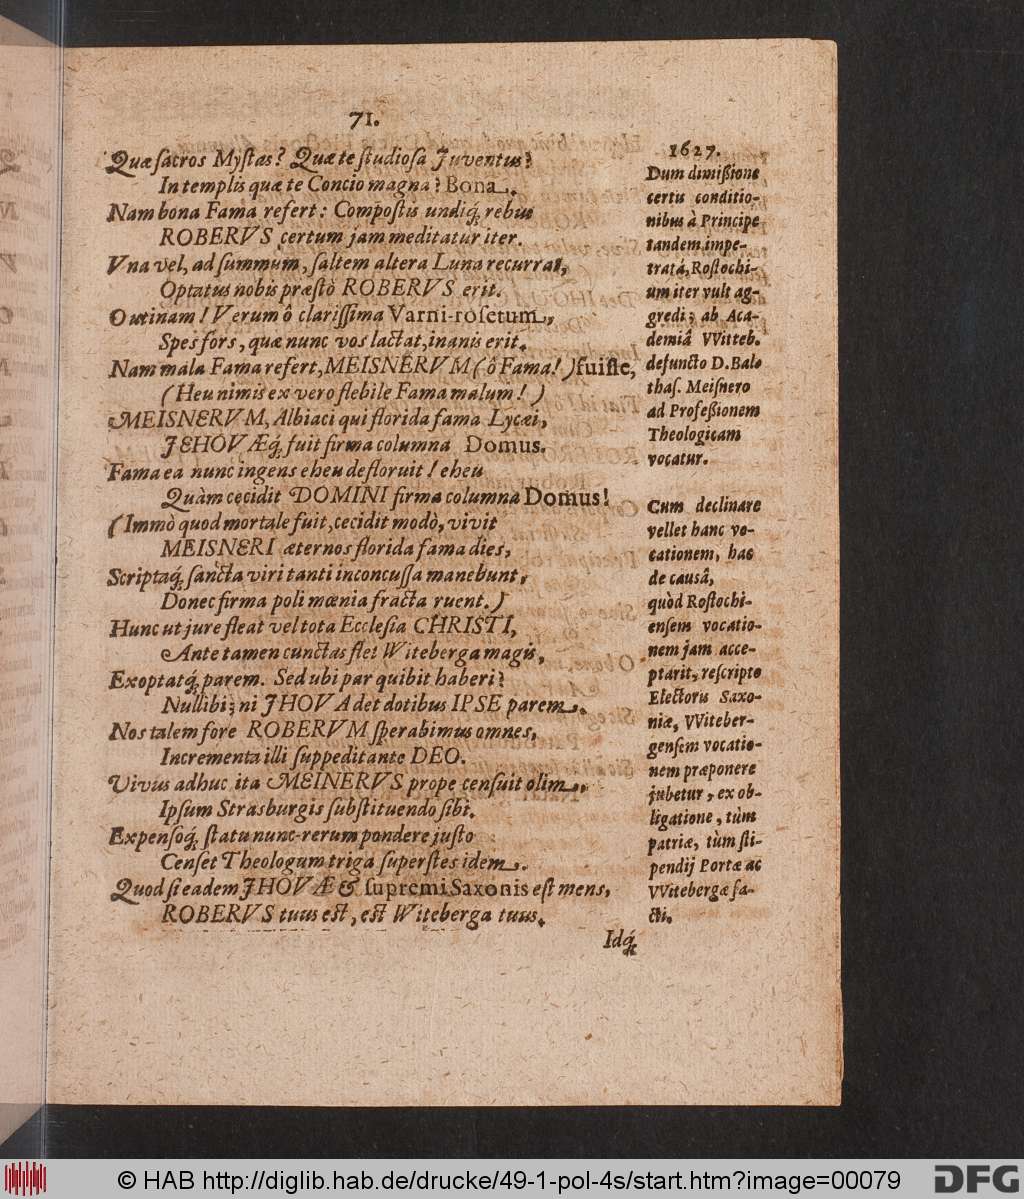 71.
Quæ sacros Mystas? Quæ te studiosa Juventus?
In templis quæ te Concio magna? Bona.
Nam bona Fama refert: Compostis undiq́; rebus
ROBERVS certum jam meditatur iter.
Vna vel, ad summum, saltem altera Luna recurrat,
Optatus nobis præstò ROBERVS erit.
O utinam! Verum ô clarissima Varni-rosetum,
Spes fors, quæ nunc vos lactat, inanis erit.
Nam mala Fama refert, MEISNERVM (ô Fama!) fuisse,
(Heu nimis ex vero flebile Fama malum!)
MEISNERVM, Albiaci qui florida fama Lycæi,
JEHOVÆq́; fuit firma columna Domus.
Fama ea nunc ingens eheu defloruit! eheu
Quàm cecidit DOMINI firma columna Domus!
(Immò quod mortale fuit, cecidit modò, vivit
MEISNERI æternos florida fama dies,
Scriptaq́; sancta viri tanti inconcussa manebunt,
Donec firma poli mœnia fracta ruent.)
Hunc ut jure fleat vel tota Ecclesia CHRISTI,
Ante tamen cunctas flet Witeberga magis,
Exoptatq́; parem. Sed ubi par quibit haberi?
Nullibi; ni JHOVA det dotibus IPSE parem.
Nos talem fore ROBERVM sperabimus omnes,
Incrementa illi suppeditante DEO.
Vivus adhuc ita MEINERVS prope censuit olim,
Ipsum Strasburgis substituendo sibi.
Expensoq́; statu nunc-rerum pondere justo
Censet Theologum triga superstes idem.
Quod si eadem JHOVÆ & supremi Saxonis est mens,
ROBERVS tuus est, est Witeberga tuus.
Idq́;
1627.
Dum dimißione
certis conditio-
nibus à Principe
tandem impe-
tratâ, Rostochi-
um iter vult ag-
gredi; ab Aca-
demiâ VVitteb.
defuncto D. Bal-
thas. Meisnero
ad Profeßionem
Theologicam
vocatur.
Cum declinare
vellet hanc vo-
cationem, hac
de causâ,
quòd Rostochi-
ensem vocatio-
nem jam acce-
ptarit, rescripto
Electoris Saxo-
niæ, VViteber-
gensem vocatio-
nem præponere
jubetur, ex ob-
ligatione, tùm
patriæ, tùm sti-
pendij Portæ ac
VVitebergæ fa-
cti.
© HAB http://diglib.hab.de/drucke/49-1-pol-4s/start.htm?image=00079
DFG